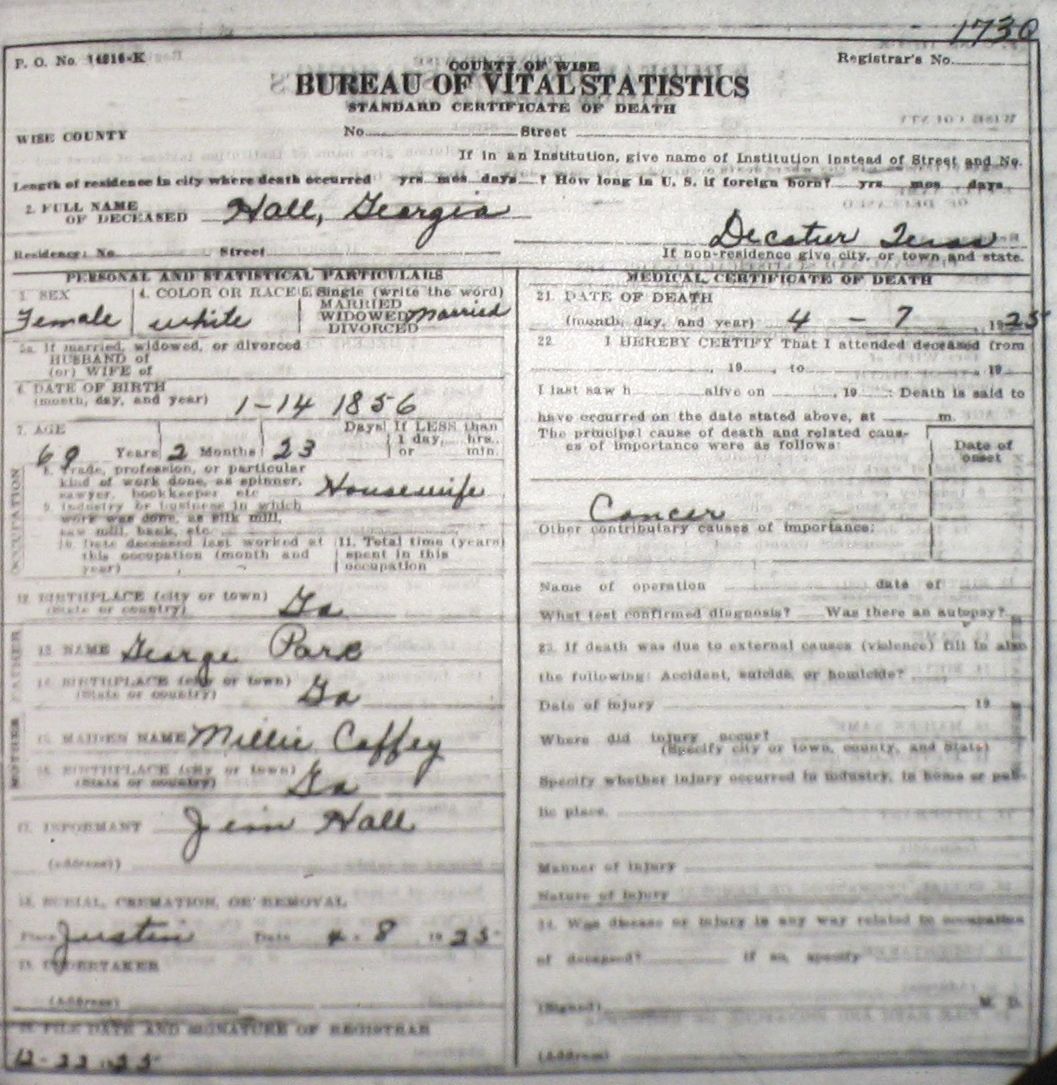 1730
P. O. No. 14816-K
Registrar's No.
COUNTY OF WISE
BUREAU OF VITAL STATISTICS
STANDARD CERTIFICATE OF DEATH
WISE COUNTY No. Street
If in an Institution, give name of Institution instead of Street and No.
Length of residence in city where death occurred yrs mos days ? How long in U. S. if foreign born? yrs mos days
2. FULL NAME
OF DECEASED Hall, Georgia
Decatur Texas
Residence: No. Street If non-residence give city, or town and state.
PERSONAL AND STATISTICAL PARTICULARS
3. SEX 4. COLOR OR RACE 5. Single (write the word)
MARRIED
WIDOWED
DIVORCED
Female white Married
5a. If married, widowed, or divorced
HUSBAND of
(or) WIFE of
6. DATE OF BIRTH
(month, day, and year) 1-14 1856
7. AGE Days If LESS than
1 day, hrs.
or min.
69 Years 2 Months 23
OCCUPATION
8. Trade, profession, or particular
kind of work done, as spinner,
sawyer, bookkeeper etc Housewife
9. Industry or business in which
work was done, as silk mill,
saw mill, bank, etc.
10. Date deceased last worked at
this occupation (month and
year)
11. Total time (years)
spent in this
occupation
12. BIRTHPLACE (city or town)
(State or country) Ga
FATHER
13. NAME George Park
14. BIRTHPLACE (city or town)
(State or country) Ga
MOTHER
15. MAIDEN NAME Millie Coffey
16. BIRTHPLACE (city or town)
(State or country) Ga
17. INFORMANT Jim Hall
(Address)
18. BURIAL, CREMATION, OR REMOVAL
Place Justin Date 4-8 1925
19. UNDERTAKER
(Address)
20. FILE DATE AND SIGNATURE OF REGISTRAR
MEDICAL CERTIFICATE OF DEATH
21. DATE OF DEATH
(month, day, and year) 4 - 7, 1925
22. I HEREBY CERTIFY That I attended deceased from
, 19 , to , 19
I last saw h alive on , 19 : Death is said to
have occurred on the date stated above, at m.
The principal cause of death and related causes
of importance were as follows:
Date of
onset
Cancer
Other contributary causes of importance:
Name of operation date of
What test confirmed diagnosis? Was there an autopsy?
23. If death was due to external causes (violence) fill in also
the following: Accident, suicide, or homicide?
Date of injury 19
Where did injury occur?
(Specify city or town, county, and State)
Specify whether injury occurred in industry, in home or pub-
lic place.
Manner of injury
Nature of injury
24. Was disease or injury in any way related to occupation
of deceased? if so, specify
(Signed) M. D.
(Address)